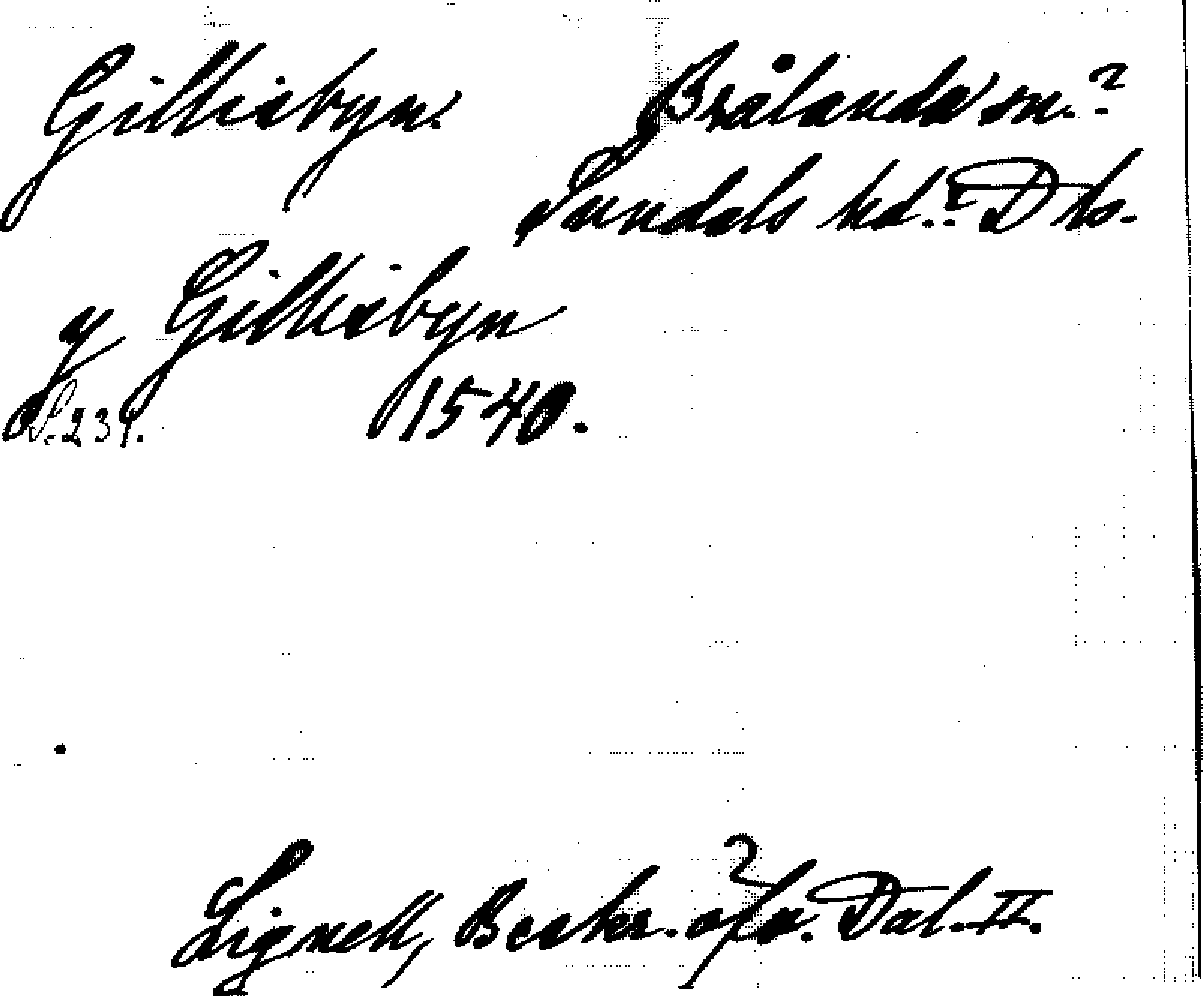 Gilliabyn. Brålanda sn.?
Sundals hd.? Dls.
y Gilliabyn
S. 239. 1540.
Lignell, Beskr. öfv. Dal. II.